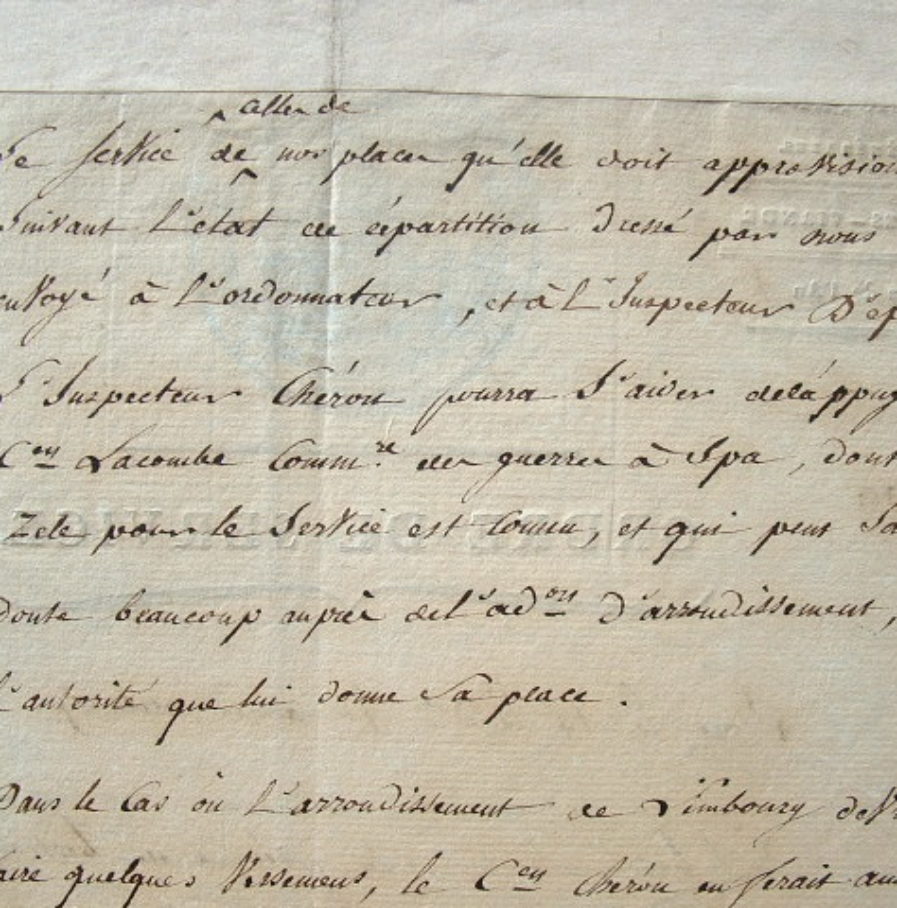 celle de
Le service de nos places qu'elle doit approvision
Suivant L'état de répartition dressé par nous
envoyé à L'ordonnateur, et à L'Inspecteur D'ep
L'Inspecteur Chéron pourra S'aider de l'appuy
Cen Lacombe Commre des guerres à Spa, dont
Zele pour le Service est Connu, et qui peut Sa
Doute beaucoup auprès de L'adon D'arrondissement,
L'autorité que lui donne Sa place.
Dans le Cas où L'arrondissement de Limbourg
faire quelques Versemens, le Cen Chéron en ferait